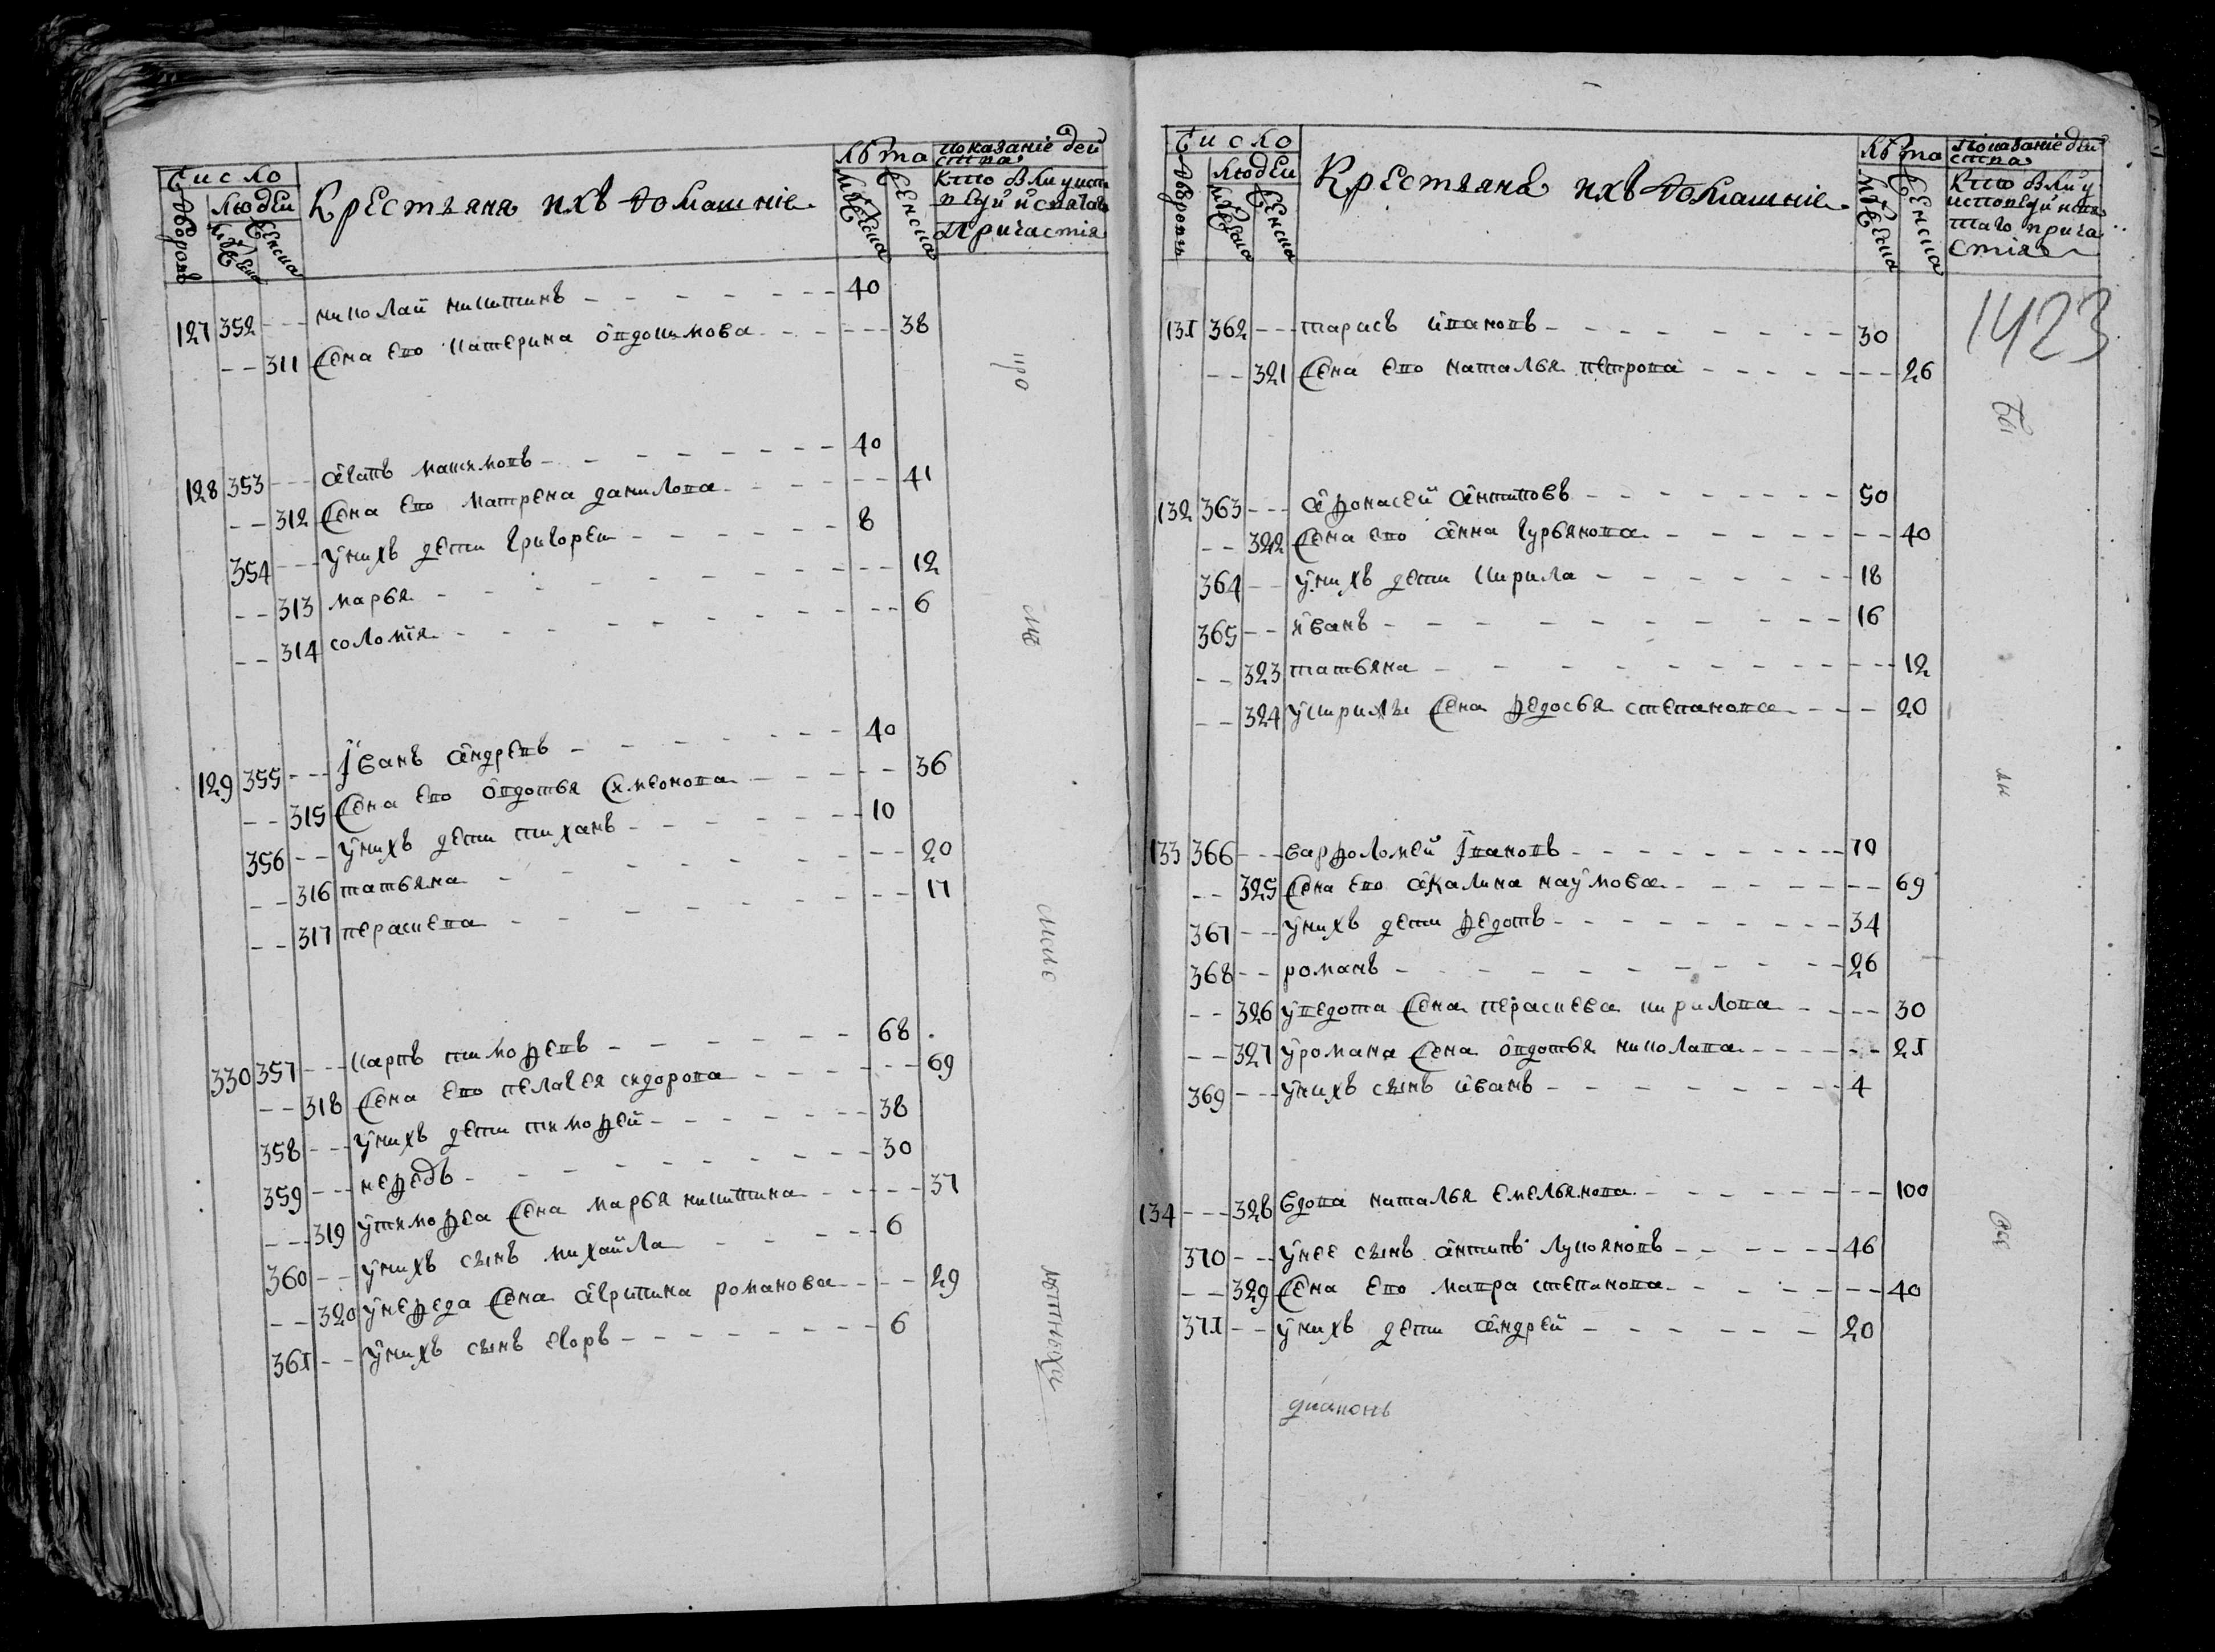 Число
Людей
Дворовъ
Мужеска
Женска
Крестьяня ихъ домашніе
Лѣта
Мужеска
Женска
Показаніе дей
ства
Кто былъ у исп
Причастія
127 352 --- николай никитинъ - - - - - - - 40
-- 311 Жена ево катерина овдокимова - - - - - 38
128 353 --- агапъ мамоновъ - - - - - - - 40
-- 312 Жена ево матрена данилова - - - - - 41
354 --- у нихъ дети григореи - - - - - - 8
-- 313 марья - - - - - - - - - 12
-- 314 соломія - - - - - - - - - 6
129 355 --- Іванъ андревъ - - - - - - - 40
-- 315 Жена ево овдотья симеонова - - - - - 36
356 -- у нихъ дети тиханъ - - - - - - 10
-- 316 татьяна - - - - - - - - 20
-- 317 пераскева - - - - - - - - 17
330 357 --- карпъ тимоѳевъ - - - - - - 68
-- 318 Жена ево пелагея сидорова - - - - - - 69
358 --- у нихъ дети тимоѳей - - - - - - 38
359 --- неѳедъ - - - - - - - - - 30
-- 319 у тимоѳеа Жена марья никитина - - - - - 37
360 -- у нихъ сынъ михайла - - - - - 6
-- 320 у неѳеда Жена агрипина романова - - - - 29
361 -- у нихъ сынъ егоръ - - - - - - - - 6
сіи
лѣтныхъ
Число
Людей
Дворовъ
Мужеска
Женска
Крестьянѣ ихъ домашніе
Лѣта
Мужеска
Женска
Показаніе дей
ства
Кто былъ у
исповеди и свя
таго прича
стія
1423
131 362 --- тарасъ ивановъ - - - - - - - - 30
-- 321 Жена ево наталья петрова - - - - - - - 26
132 363 --- аѳонасей антиповъ - - - - - - - 50
-- 322 Жена ево анна гурьянова - - - - - - - 40
364 -- у нихъ дети кирила - - - - - - - 18
365 -- иванъ - - - - - - - - - 16
-- 323 татьяна - - - - - - - - - - 12
-- 324 у кирилы Жена ѳедосья степанова - - - - 20
133 366 --- варѳоломей Івановъ - - - - - - - - 70
-- 325 Жена ево акалина наумова - - - - - - 69
367 -- у нихъ дети ѳедотъ - - - - - - - - 34
368 -- романъ - - - - - - - - - 26
-- 326 у ѳедота Жена пераскева кирилова - - - - 30
-- 327 у романа Жена овдотья николава - - - - - - 21
369 --- у нихъ сынъ иванъ - - - - - - - - 4
134 --- 328 вдова наталья емельянова - - - - - - - 100
370 -- у нее сынъ антипъ лукояновъ - - - - - - 46
-- 329 Жена ево мавра степанова - - - - - - - 40
371 -- у нихъ дети андрей - - - - - - 20
діаконъ